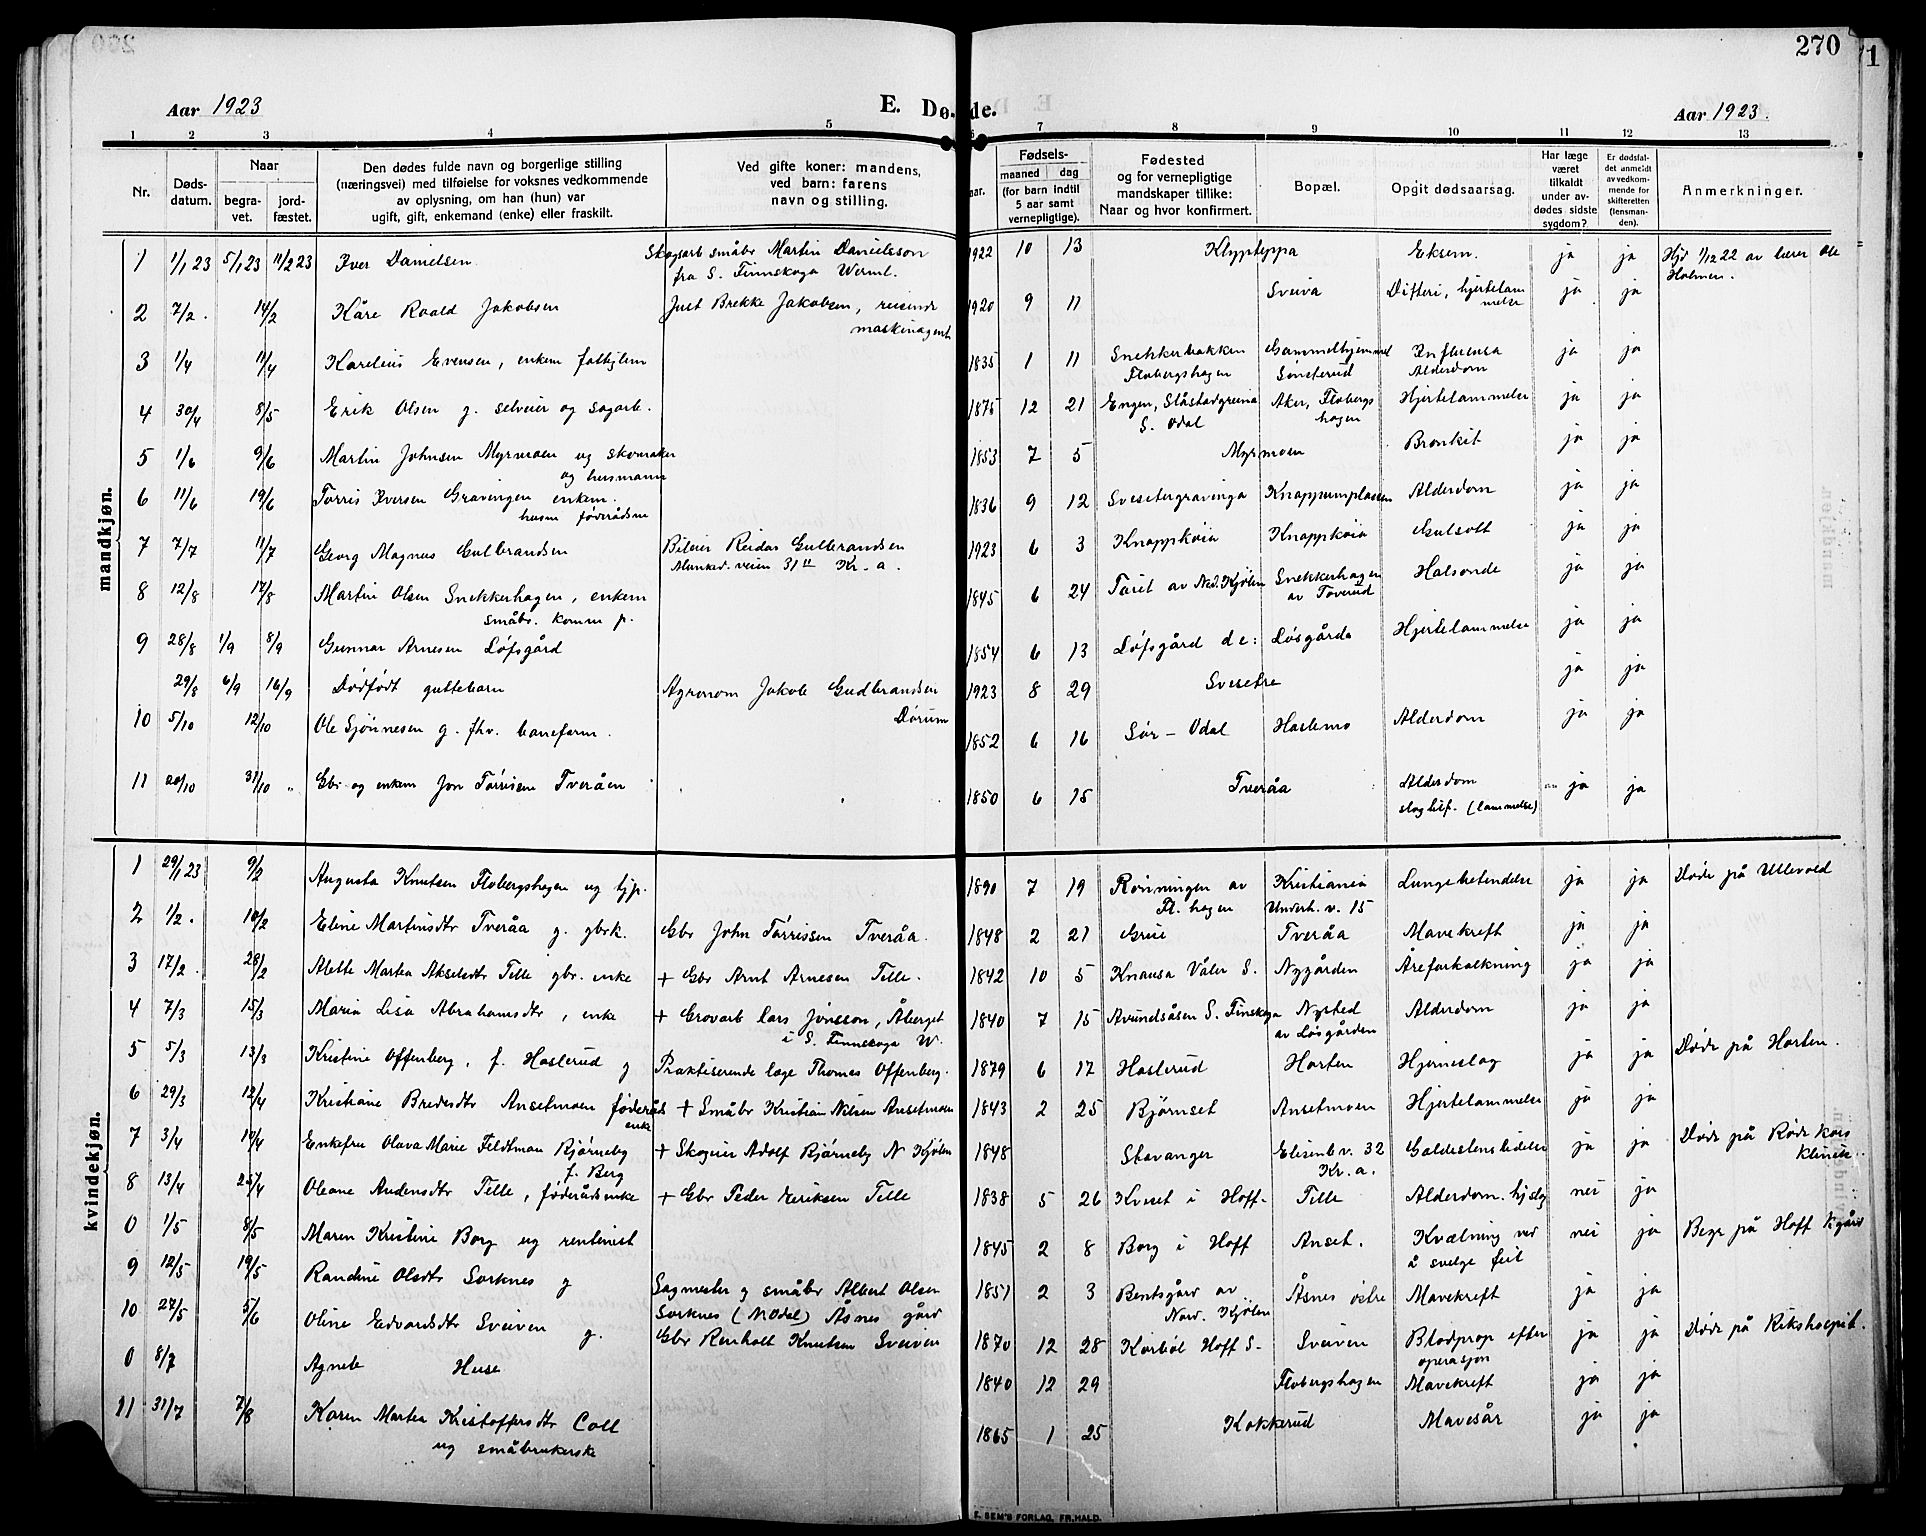 270
1
Aar 1923
E. Dø
de.
Aar 1923.
1 2 3 4 5 6 7 8 9 10 11 12 13
Nr.
Døds-
datum.
Naar
begra-
vet.
jord-
fæstet.
Den dødes fulde navn og borgerlige stilling
(næringsvei) med tilføielse for voksnes vedkommende
av oplysning, om han (hun) var
ugift, gift, enkemand (enke) eller fraskilt.
Ved gifte koner: mandens,
ved barn: farens
navn og stilling.
aar.
Fødsels-
maaned dag
(for barn indtil
5 aar samt
vernepligtige).
Fødested
og for vernepligtige
mandskaper tillike:
Naar og hvor konfirmert.
Bopæl.
Opgit dødsaarsag.
Har læge
været
tilkaldt
under av-
dødes sidste
sygdom?
Er dødsfal-
det anmeldt
av vedkom-
mende for
skifteretten
(lensman-
den).
Anmerkninger.
mandkjøn.
1 1/1 23 5/1 23 11/2 23 Iver Danielsen Skogsarb småbr Martin Danielsson 1922 10 13 Klypteppa Eksem. ja ja Hjd 1/12 22 av lærer Ole
fra S. Finnskoga Werml. Holmen.
2 7/2. 14/2 Kåre Roald Jakobsen Just Brekke Jakobsen, reisende 1920 9 11 Sveiva Difteri, hjertelam ja ja
maskinagent melse
3 1/4 11/4 Karelius Evensen, enkem 1835 1 11 Snekkerbakken Gammelhjemmet Influensa ja ja
Flobergshagen Sønsterud Alderdom
4 30/4 8/5 Erik Olsen g. selveier og sagarb. 1875 12 21 Engen, Slåstadgreina Aker, Flobergs Hjertelammelse ja ja
S. Odal hagen
5 1/6 9/6 Martin Johnsen Myrmoen ug skomaker 1853 7 5 Myrmoen Bronkit ja ja
og husmann
6 11/6 19/6 Tørris Iversen Gravingen enkem. 1836 9 12 Svesetergravinga Knappumplassen Alderdom ja ja
husm føderådsm
7 7/7 11/7 Georg Magnus Gulbrandsen Bileier Reidar Gulbrandsen 1923 6 3 Knappkoia Knappkoia Gulsott ja ja
veien 31 II Kr. a.
8 12/8 17/8 Martin Olsen Snekkerhagen, enkem 1845 6 24 Taret av Ned. Kjølen Snekkerhagen Halsonde ja ja
småbr. komm p. av Toverud
9 28/8 1/9 8/9 Gunnar Arnesen Løfsgård 1854 6 13 Løfsgård d e: Løsgårda Hjertelammelse ja ja
29/8 6/9 16/9 Dødfødt guttebarn Agronom Jakob Gudbrandsen 1923 8 29 Svesetre ja ja
Dørum
10 5/10 12/10 Ole Sjønnesen g. fhv. baneform. 1852 6 16 Sør-Odal Haslemo Alderdom ja ja
11 20/10 31/10 „ Gbr og enkem Jon Tørrisen Tveråen 1850 6 15 Tveråa Alderdom ja ja
slagtilf. (lammelse)
kvindekjøn.
1 29/1 23 9/2 Augusta Knutsen Flobergshagen ug tjp. 1890 7 19 Rønningen av Kristiania Lungebetendelse ja ja Døde på Ullevold
Fl. hagen Underh. v. 15
2 1/2. 10/2 Eline Martinsdtr Tveråa g. gbrk. Gbr John Tørrissen Tveråa. 1848 2 21 Grue Tveråa Mavekreft ja ja
3 17/2. 28/2 Alette Martea Akseldtr Tille gbr. enke + Gbr Arnt Arnesen Tille. 1842 10 5 Knausa Våler S. Nygården Åreforkalkning ja ja
4 7/3 15/3 Maria Lisa Abrahamsdtr, enke + Grovarb Lars Jönsson, Åberget 1840 7 15 Avundsåsen S. Finskoga Nysted Alderdom ja ja
i S. Finnskoga W. av Løsgården
5 5/3 13/3 Kristine Offenberg, f. Haslerud g Praktiserende læge Thomas Offenberg. 1879 6 17 Haslerud Horten Hjerneslag ja ja Døde på Horten.
6 29/3 12/4 Kristiane Bredesdtr Ansetmoen føderåds + Småbr Kristian Nilsen Ansetmoen 1843 2 25 Bjørnset Ansetmoen Hjertelammelse ja ja
enke
7 3/4 10/4 Enkefru Olava Marie Feldtman Bjørneby + Skogeier Adolf Bjørneby N Kjølen 1848 Stavanger Elisenb v. 32 Galdestenslidelse ja ja Døde på Røde Kors
f. Berg Kr. a. klinikk.
8 13/4 25/4 Oleane Andersdtr Tille, føderådsenke + Gbr Peder Eriksen Tille 1838 5 26 Kveset i Hoff- Tille Alderdom. hjslag nei ja
0 1/5 8/5 Maren Kristine Borg ug rentenist 1845 2 8 Borg i Hoff Anset. Kvælning ved nei ja Begr på Hoff kgård
å svelge feil
9 12/5 19/5 Randine Olsdtr Sorknes g Sagmester g småbr Albert Olsen 1851 2 3 Bentsgård av Åsnes østre Mavekreft ja ja
Sorknes (N Odal) Åsnes gård Nord. Kjølen
10 27/5 5/6 Oline Edvardsdtr Sveiven g. Gbr Renholt Knutsen Sveiven 1870 12 28 Korbøl Hoff S- Sveiven Blodprop efter ja ja Døde på Rikshospit.
operasjon
0 8/7 Agnete Huse 1840 12 29 Flobergshagen Mavekreft ja ja
11 31/7 7/8 Karen Martea Kristoffersdtr Coll 1865 1 25 Kokkerud Mavesår ja ja
ug småbrukerske
E. SEM'S FORLAG, FR.HALD.